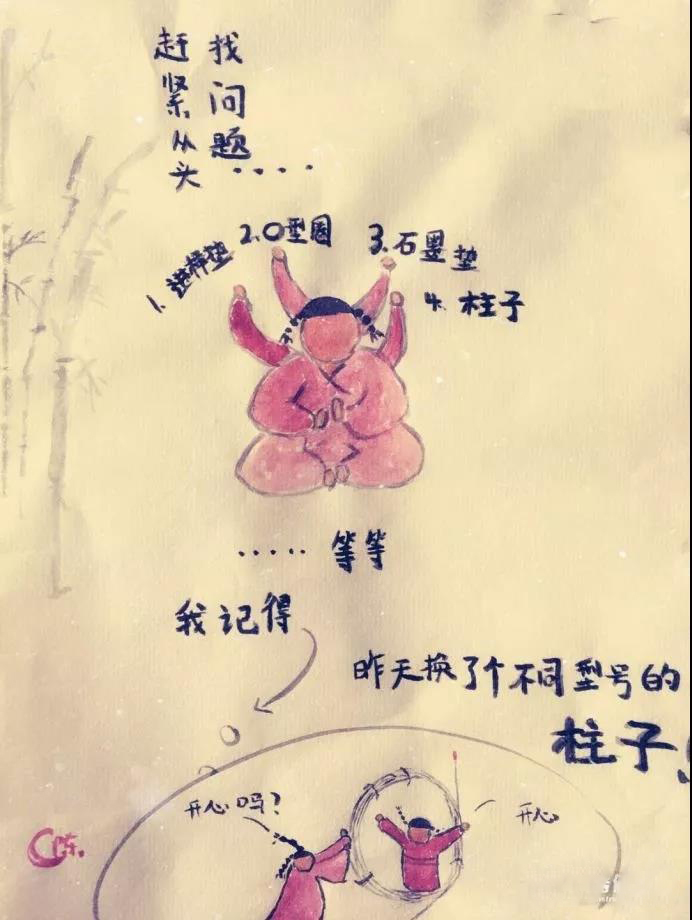 找问题
赶紧从头····
1. 进样垫
2. O型圈
3. 石墨垫
4. 柱子
····· 等等
我记得
昨天换了个不同型号的
柱子!
开心吗?
开心
陈.